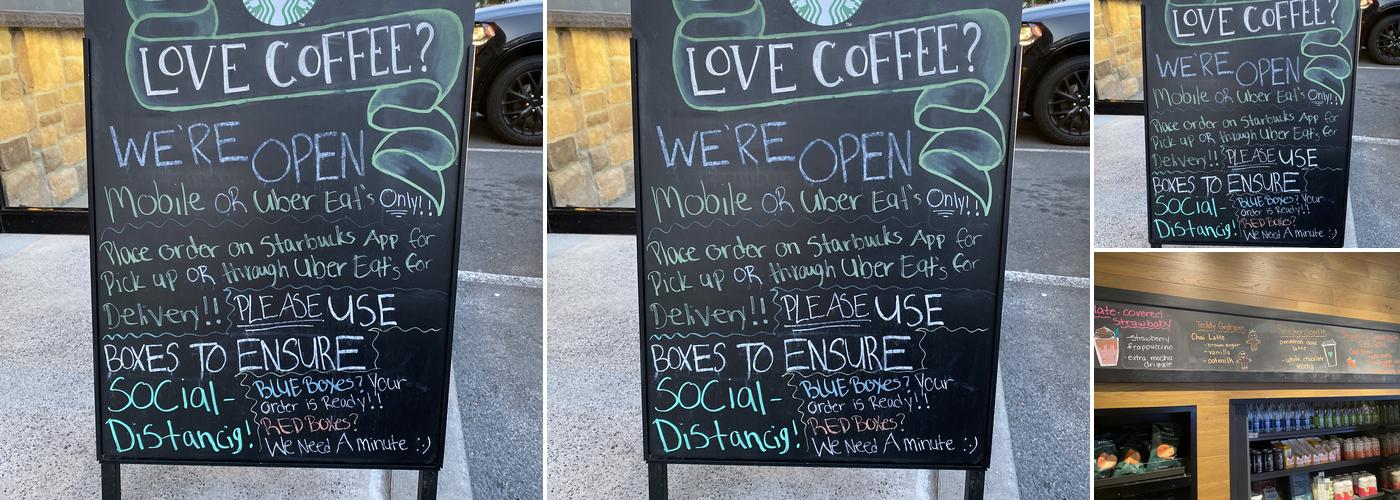 LOVE COFFEE?
WE'RE OPEN
Mobile OR Uber Eat's Only!!
Place order on Starbucks App for
Pick up OR through Uber Eat's for
Delivery!! PLEASE USE
BOXES TO ENSURE
SOCial-
Distancig!
BLUE Boxes? Your
order is Ready!!
RED Boxes?
We Need A minute :)
LOVE COFFEE?
WE'RE OPEN
Mobile OR Uber Eat's Only!!
Place order on Starbucks App for
Pick up OR through Uber Eat's for
Delivery!! PLEASE USE
BOXES TO ENSURE
SOCial-
Distancig!
BLUE Boxes? Your
order is Ready!!
RED Boxes?
We Need A minute :)
LOVE COFFEE?
WE'RE OPEN
Mobile OR Uber Eat's Only!!
Place order on Starbucks App for
Pick up OR through Uber Eat's for
Delivery!! PLEASE USE
BOXES TO ENSURE
SOCial-
Distancig!
BLUE Boxes? Your
order is Ready!!
RED Boxes?
We Need A minute :)
late-covered
strawbaby
-strawberry
frappuccino
-extra mocha
drizzle
Teddy Graham
Chai Latte
-brown sugar
-vanilla
-oatmilk
Snickerdoodle
cinnamon
latte
white chocolate
mocha